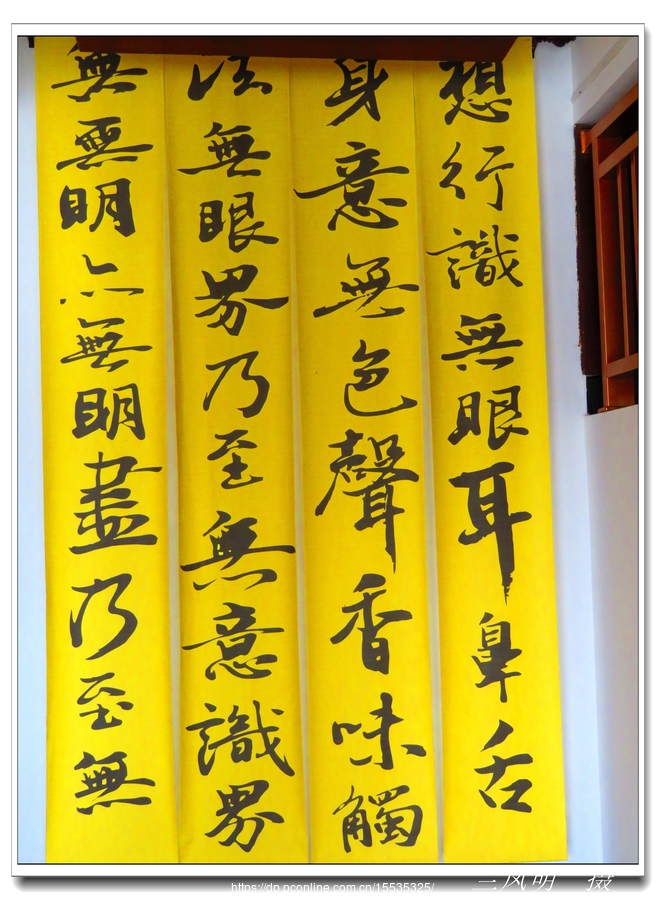 想行識無眼耳鼻舌
身意無色聲香味觸
法無眼界乃至無意識界
無無明亦無明盡乃至無
https://dp.pconline.com.cn/15535325/
三风明 摄